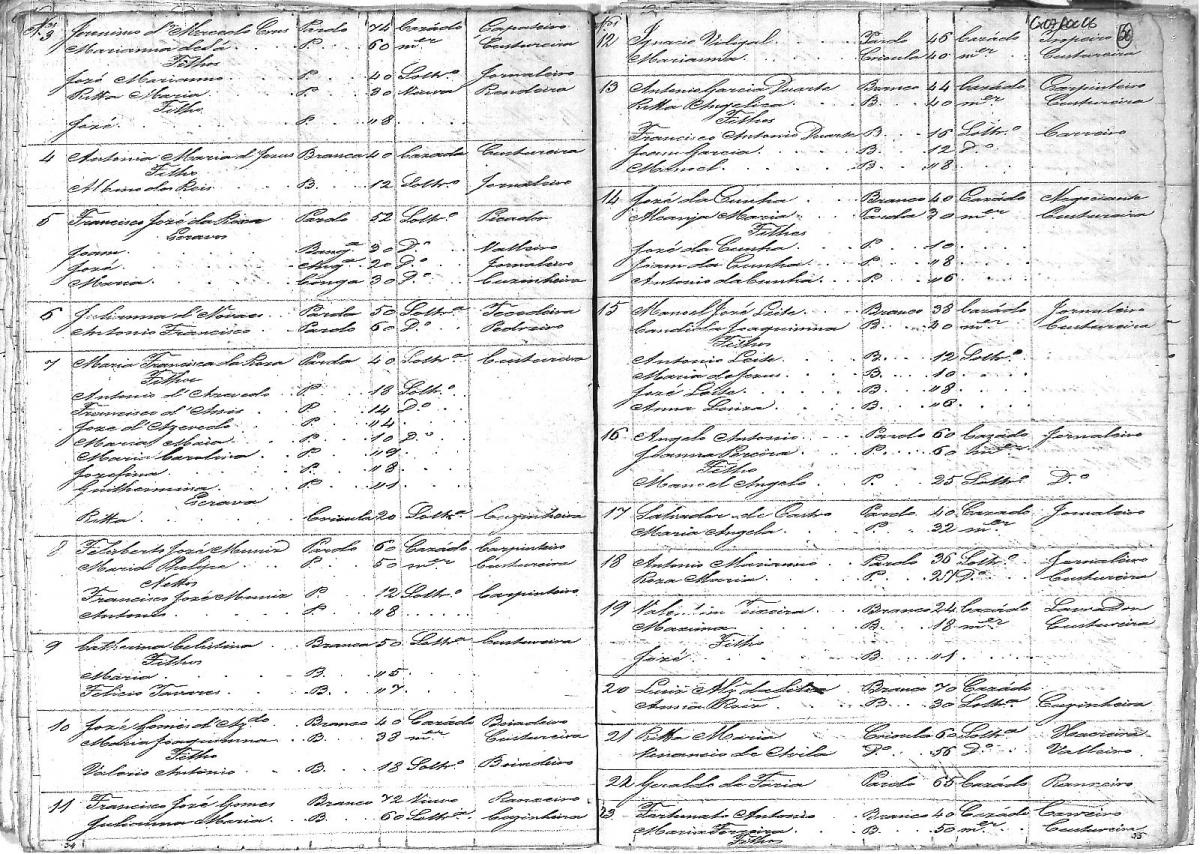 3 Jeronimo d' Mercado Pardo 74 Cazádo
Marianna de Sá P. 60 m.er Custureira
Filhos
José Marianno P. 40 Soltr.o Jornaleiro
Ritta Maria P. 30 Viuva Rendeira
Filho
José P. 8
4 Antonia Maria d' Jezus Branca 40 Cazada Custureira
Filho
Albino dos Reis B. 12 Soltr.o Jornaleiro
5 Francisco José da Roza Pardo 52 Soltr.o
Escravos
Joam 30 D.o Valleiro
José 20 D.o Jornaleiro
Maria Conga 30 D.o Cuzinheira
6 Julianna d' Parda 50 Soltr.a Tecedeira
Antonio Francisco Pardo 60 D.o Pedreiro
7 Maria Francisca da Roza Parda 40 Soltr.a Custureira
Filhos
Antonio d' Azevedo P. 18 Soltr.o
Francisco d' Assis P. 14 D.o
Jose d' Azevedo P. 4
Maria P. 10 D.o
Maria P. 9
Jozefina P. 8
Guilhermina P. 1
Escrava
Ritta Crioula 20 Soltr.a Cozinheira
8 Feliberto José Muniz Pardo 60 Cazádo Carpinteiro
Maria P. 50 m.er Custureira
Nettos
Francisco José Muniz P. 12 Soltr.o Carpinteiro
Antonio P. 8
9 Catherina Celestina Branca 50 Soltr.a Custureira
Filhos
Maria B. 5
Felicio Tavares B. 7
10 José Gomes d' Az.do Branco 40 Cazádo Boiadeiro
Maria Joaquinna B. 33 m.er Custureira
Filho
Valerio Antonio B. 18 Soltr.o Boiadeiro
11 Francisco José Gomes Branco 72 Viuvo Rancxeiro
Julianna Maria B. 60 Soltr.a Cozinheira
34
56
12 Ignacio Pardo 46 Cazádo Tropeiro
Marianna Crioula 40 m.er Custureira
13 Antonio Garcia Duarte Branco 44 Cazádo Carpinteiro
Ritta Angelica B. 40 m.er Custureira
Filhos
Francisco Antonio Duarte B. 16 Soltr.o Carreiro
Joam Garcia B. 12 D.o
Manoel B. 8
14 José da Cunha Branco 40 Cazádo Negociante
Maria Parda 30 m.er Custureira
Filhos
José da Cunha P. 10
Joam da Cunha P. 8
Antonio da Cunha P. 6
15 Manoel José Leite Branco 38 Cazádo Jornaleiro
Candida Joaquinna B. 40 m.er Custureira
Filhos
Antonio Leite B. 12 Soltr.o
Maria de Jezus B. 10
José Leite B. 8
Anna Louza B. 6
16 Angelo Antonio Pardo 60 Cazádo Jornaleiro
Joanna Pereira P. 60 m.er
Filho
Manoel Angelo P. 25 Soltr.o D.o
17 Salvador de Castro Pardo 40 Cazado Jornaleiro
Maria Angela P. 32 m.er
18 Antonio Marianno Pardo 36 Soltr.o Jornaleiro
Roza Maria P. 27 D.o Custureira
19 Teixeira Branco 24 Cazádo Lavrador
Maxima B. 18 m.er Custureira
Filho
José B. 1
20 Luiz Alz da Silva Branco 70 Cazádo
Anna Roza B. 30 Soltr.a Cozinheira
21 Ritta Maria Crioula 60 Soltr.a
Venancio da Avila D.o 56 D.o Valleiro
22 Geraldo de Faria Pardo 65 Cazádo Rancxeiro
23 Fortunato Antonio Branco 40 Cazádo Carreiro
Maria Ferreira B. 50 m.er Custureira
Filhos
35